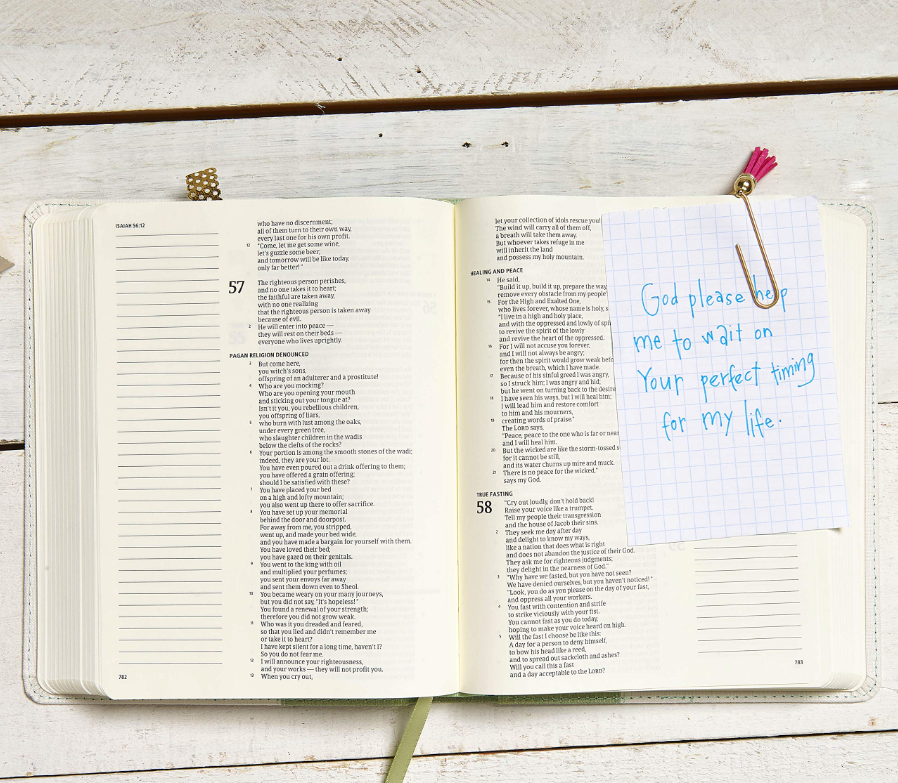 ISAIAH 56:12
who have no discernment;
all of them turn to their own way,
every last one for his own profit.
12 "Come, let me get some wine,
let's guzzle some beer;
and tomorrow will be like today,
only far better!"
57 The righteous person perishes,
and no one takes it to heart;
the faithful are taken away,
with no one realizing
that the righteous person is taken away
because of evil.
2 He will enter into peace —
they will rest on their beds —
everyone who lives uprightly.
PAGAN RELIGION DENOUNCED
3 But come here,
you witch's sons,
offspring of an adulterer and a prostitute!
4 Who are you mocking?
Who are you opening your mouth
and sticking out your tongue at?
Isn't it you, you rebellious children,
you offspring of liars,
5 who burn with lust among the oaks,
under every green tree,
who slaughter children in the wadis
below the clefts of the rocks?
6 Your portion is among the smooth stones of the wadi;
indeed, they are your lot.
You have even poured out a drink offering to them;
you have offered a grain offering;
should I be satisfied with these?
7 You have placed your bed
on a high and lofty mountain;
you also went up there to offer sacrifice.
8 You have set up your memorial
behind the door and doorpost.
For away from me, you stripped,
went up, and made your bed wide,
and you have made a bargain for yourself with them.
You have loved their bed;
you have gazed on their genitals.
9 You went to the king with oil
and multiplied your perfumes;
you sent your envoys far away
and sent them down even to Sheol.
10 You became weary on your many journeys,
but you did not say, "It's hopeless!"
You found a renewal of your strength;
therefore you did not grow weak.
11 Who was it you dreaded and feared,
so that you lied and didn't remember me
or take it to heart?
I have kept silent for a long time, haven't I?
So you do not fear me.
12 I will announce your righteousness,
and your works — they will not profit you.
13 When you cry out,
782
let your collection of idols rescue you!
The wind will carry all of them off,
a breath will take them away.
But whoever takes refuge in me
will inherit the land
and possess my holy mountain.
HEALING AND PEACE
14 He said,
"Build it up, build it up, prepare the way,
remove every obstacle from my people
15 For the High and Exalted One,
who lives forever, whose name is holy,
"I live in a high and holy place,
and with the oppressed and lowly of
to revive the spirit of the lowly
and revive the heart of the oppressed.
16 For I will not accuse you forever,
and I will not always be angry;
for then the spirit would grow weak
even the breath, which I have made.
17 Because of his sinful greed I was angry,
so I struck him; I was angry and hid;
but he went on turning back to the
18 I have seen his ways, but I will heal him;
I will lead him and restore comfort
to him and his mourners,
19 creating words of praise."
The LORD says,
"Peace, peace to the one who is far or
and I will heal him.
20 But the wicked are like the storm-tossed
for it cannot be still,
and its water churns up mire and muck.
21 There is no peace for the wicked,"
says my God.
TRUE FASTING
58 "Cry out loudly, don't hold back!
Raise your voice like a trumpet.
Tell my people their transgression
and the house of Jacob their sins.
2 They seek me day after day
and delight to know my ways,
like a nation that does what is right
and does not abandon the justice of their God.
They ask me for righteous judgments;
they delight in the nearness of God."
3 "Why have we fasted, but you have not seen?
We have denied ourselves, but you haven't noticed!"
"Look, you do as you please on the day of your fast,
and oppress all your workers.
4 You fast with contention and strife
to strike viciously with your fist.
You cannot fast as you do today,
hoping to make your voice heard on high.
5 Will the fast I choose be like this:
A day for a person to deny himself,
to bow his head like a reed,
and to spread out sackcloth and ashes?
Will you call this a fast
and a day acceptable to the LORD?
783
God please help
me to wait on
Your perfect timing
for my life.